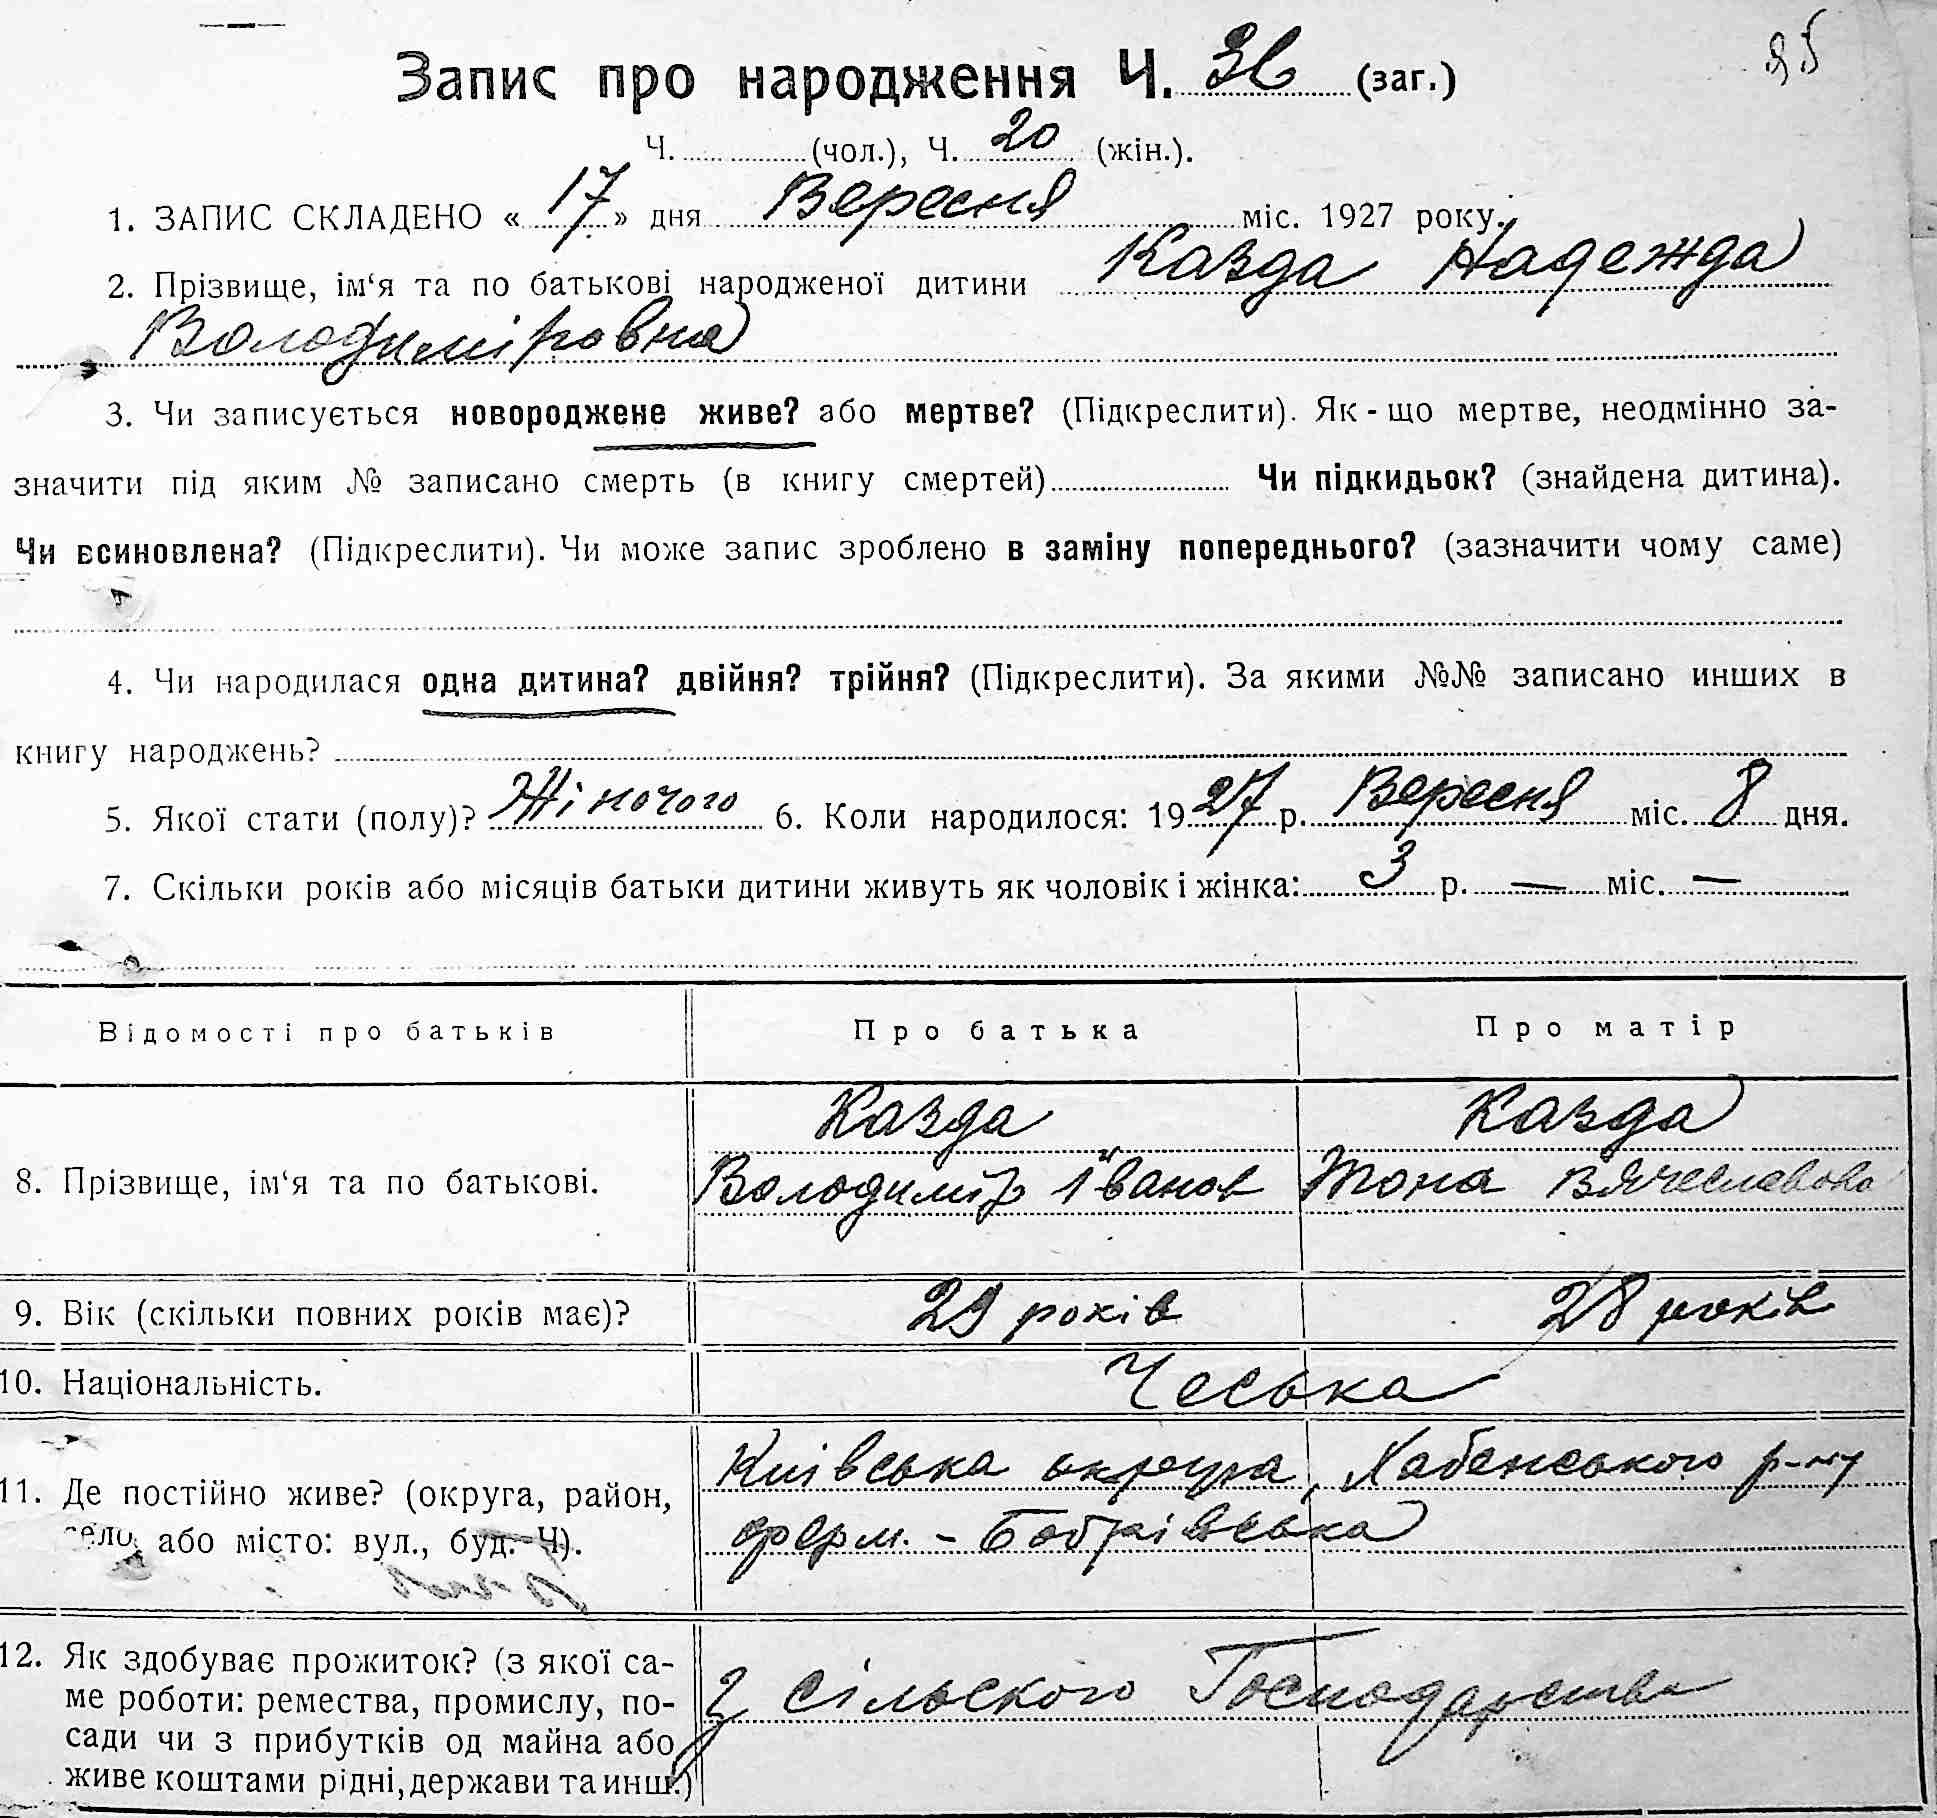 95
Запис про народження Ч. 36 (заг.)
Ч. (чол.), Ч. 20 (жін.).
1. ЗАПИС СКЛАДЕНО « 17 » дня Вересня міс. 1927 року.
2. Прізвище, ім‘я та по батькові народженої дитини Казда Надежда
Володиміровна
3. Чи записується новороджене живе? або мертве? (Підкреслити). Як-що мертве, неодмінно за-
значити під яким № записано смерть (в книгу смертей) Чи підкидьок? (знайдена дитина).
Чи всиновлена? (Підкреслити). Чи може запис зроблено в заміну попереднього? (зазначити чому саме)
4. Чи народилася одна дитина? двійня? трійня? (Підкреслити). За якими №№ записано инших в
книгу народжень?
5. Якої стати (полу)? Жіночого 6. Коли народилося: 1927 р. Вересня міс. 8 дня.
7. Скільки років або місяців батьки дитини живуть як чоловік і жінка: 3 р. — міс. —
Відомості про батьків Про батька Про матір
Казда Казда
8. Прізвище, ім‘я та по батькові. Володимір Іванов Тона Вячеславова
9. Вік (скільки повних років має)? 29 років 28 років
10. Національність. Чеська
Київська округа, Хабенського р-ну
11. Де постійно живе? (округа, район,
село, або місто: вул., буд. Ч). ферм. - Бобрівська
12. Як здобуває прожиток? (з якої са-
ме роботи: ремества, промислу, по- з сільского Господарства
сади чи з прибутків од майна або
живе коштами рідні, держави та инш.)